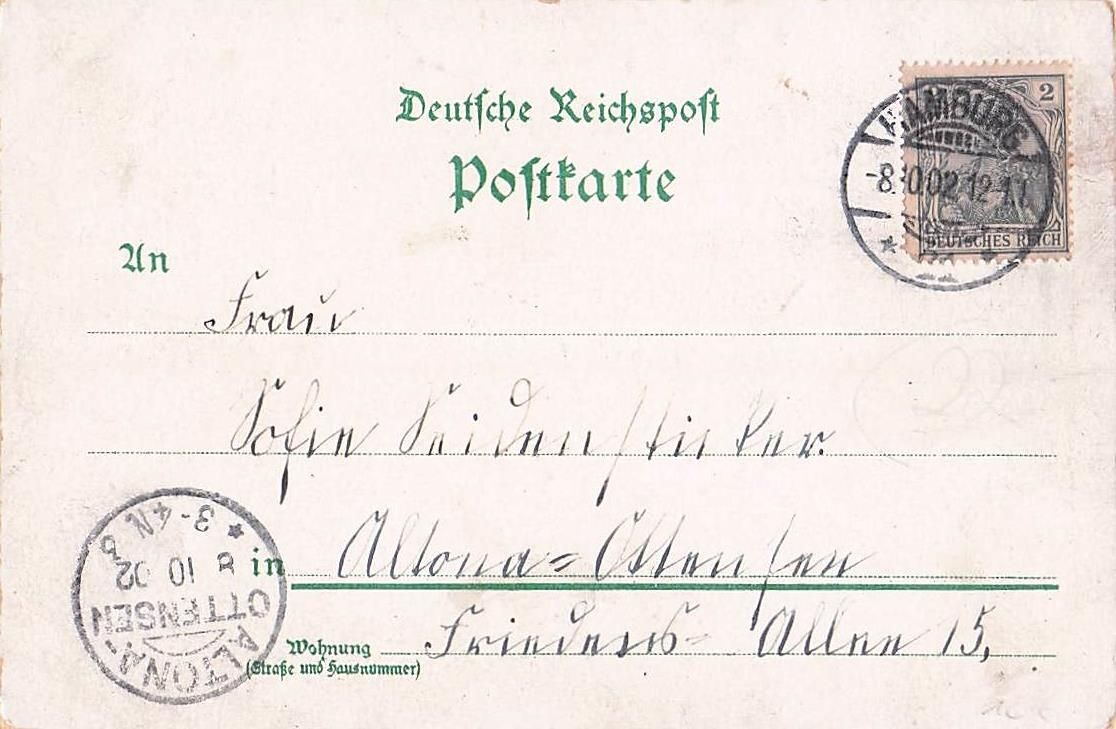 Deutsche Reichspost
Postkarte
2
HAMBURG
-8.10.02.12-1
DEUTSCHES REICH
An
Frau
Sofie Seidensticker.
in Altona-Ottensen
Wohnung Friedens-Allee 15.
(Straße und Hausnummer)
ALTONA-
OTTENSEN
8 10 02
* 3-4 N.